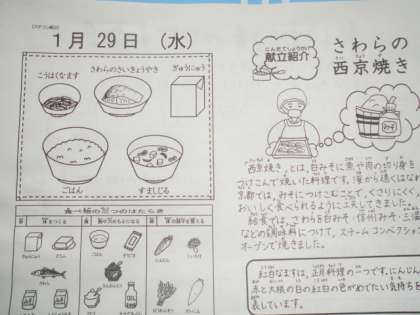 1月 29日 （水）
こうはくなます
さわらのさいきょうやき
ぎゅうにゅう
ごはん
すましじる
食べ物の三つのはたらき
こんだてしょうかい
献立紹介
さわらの
西京焼き
西京焼き、とは、白みそに魚や肉の切り身を
つけこんで焼いた料理です。昔から
京都では、みそにつけこむことで、くさりにくく、
おいしく食べられるように工夫してきました。
給食では、さわらを白みそ・信州みそ・三温
などの調味料につけて、スチームコンベクション
オーブンで焼きました。
紅白なますは、正月料理の一つです。にんじん
赤と大根の白の紅白の色がめでたい気持ちを
表しています。